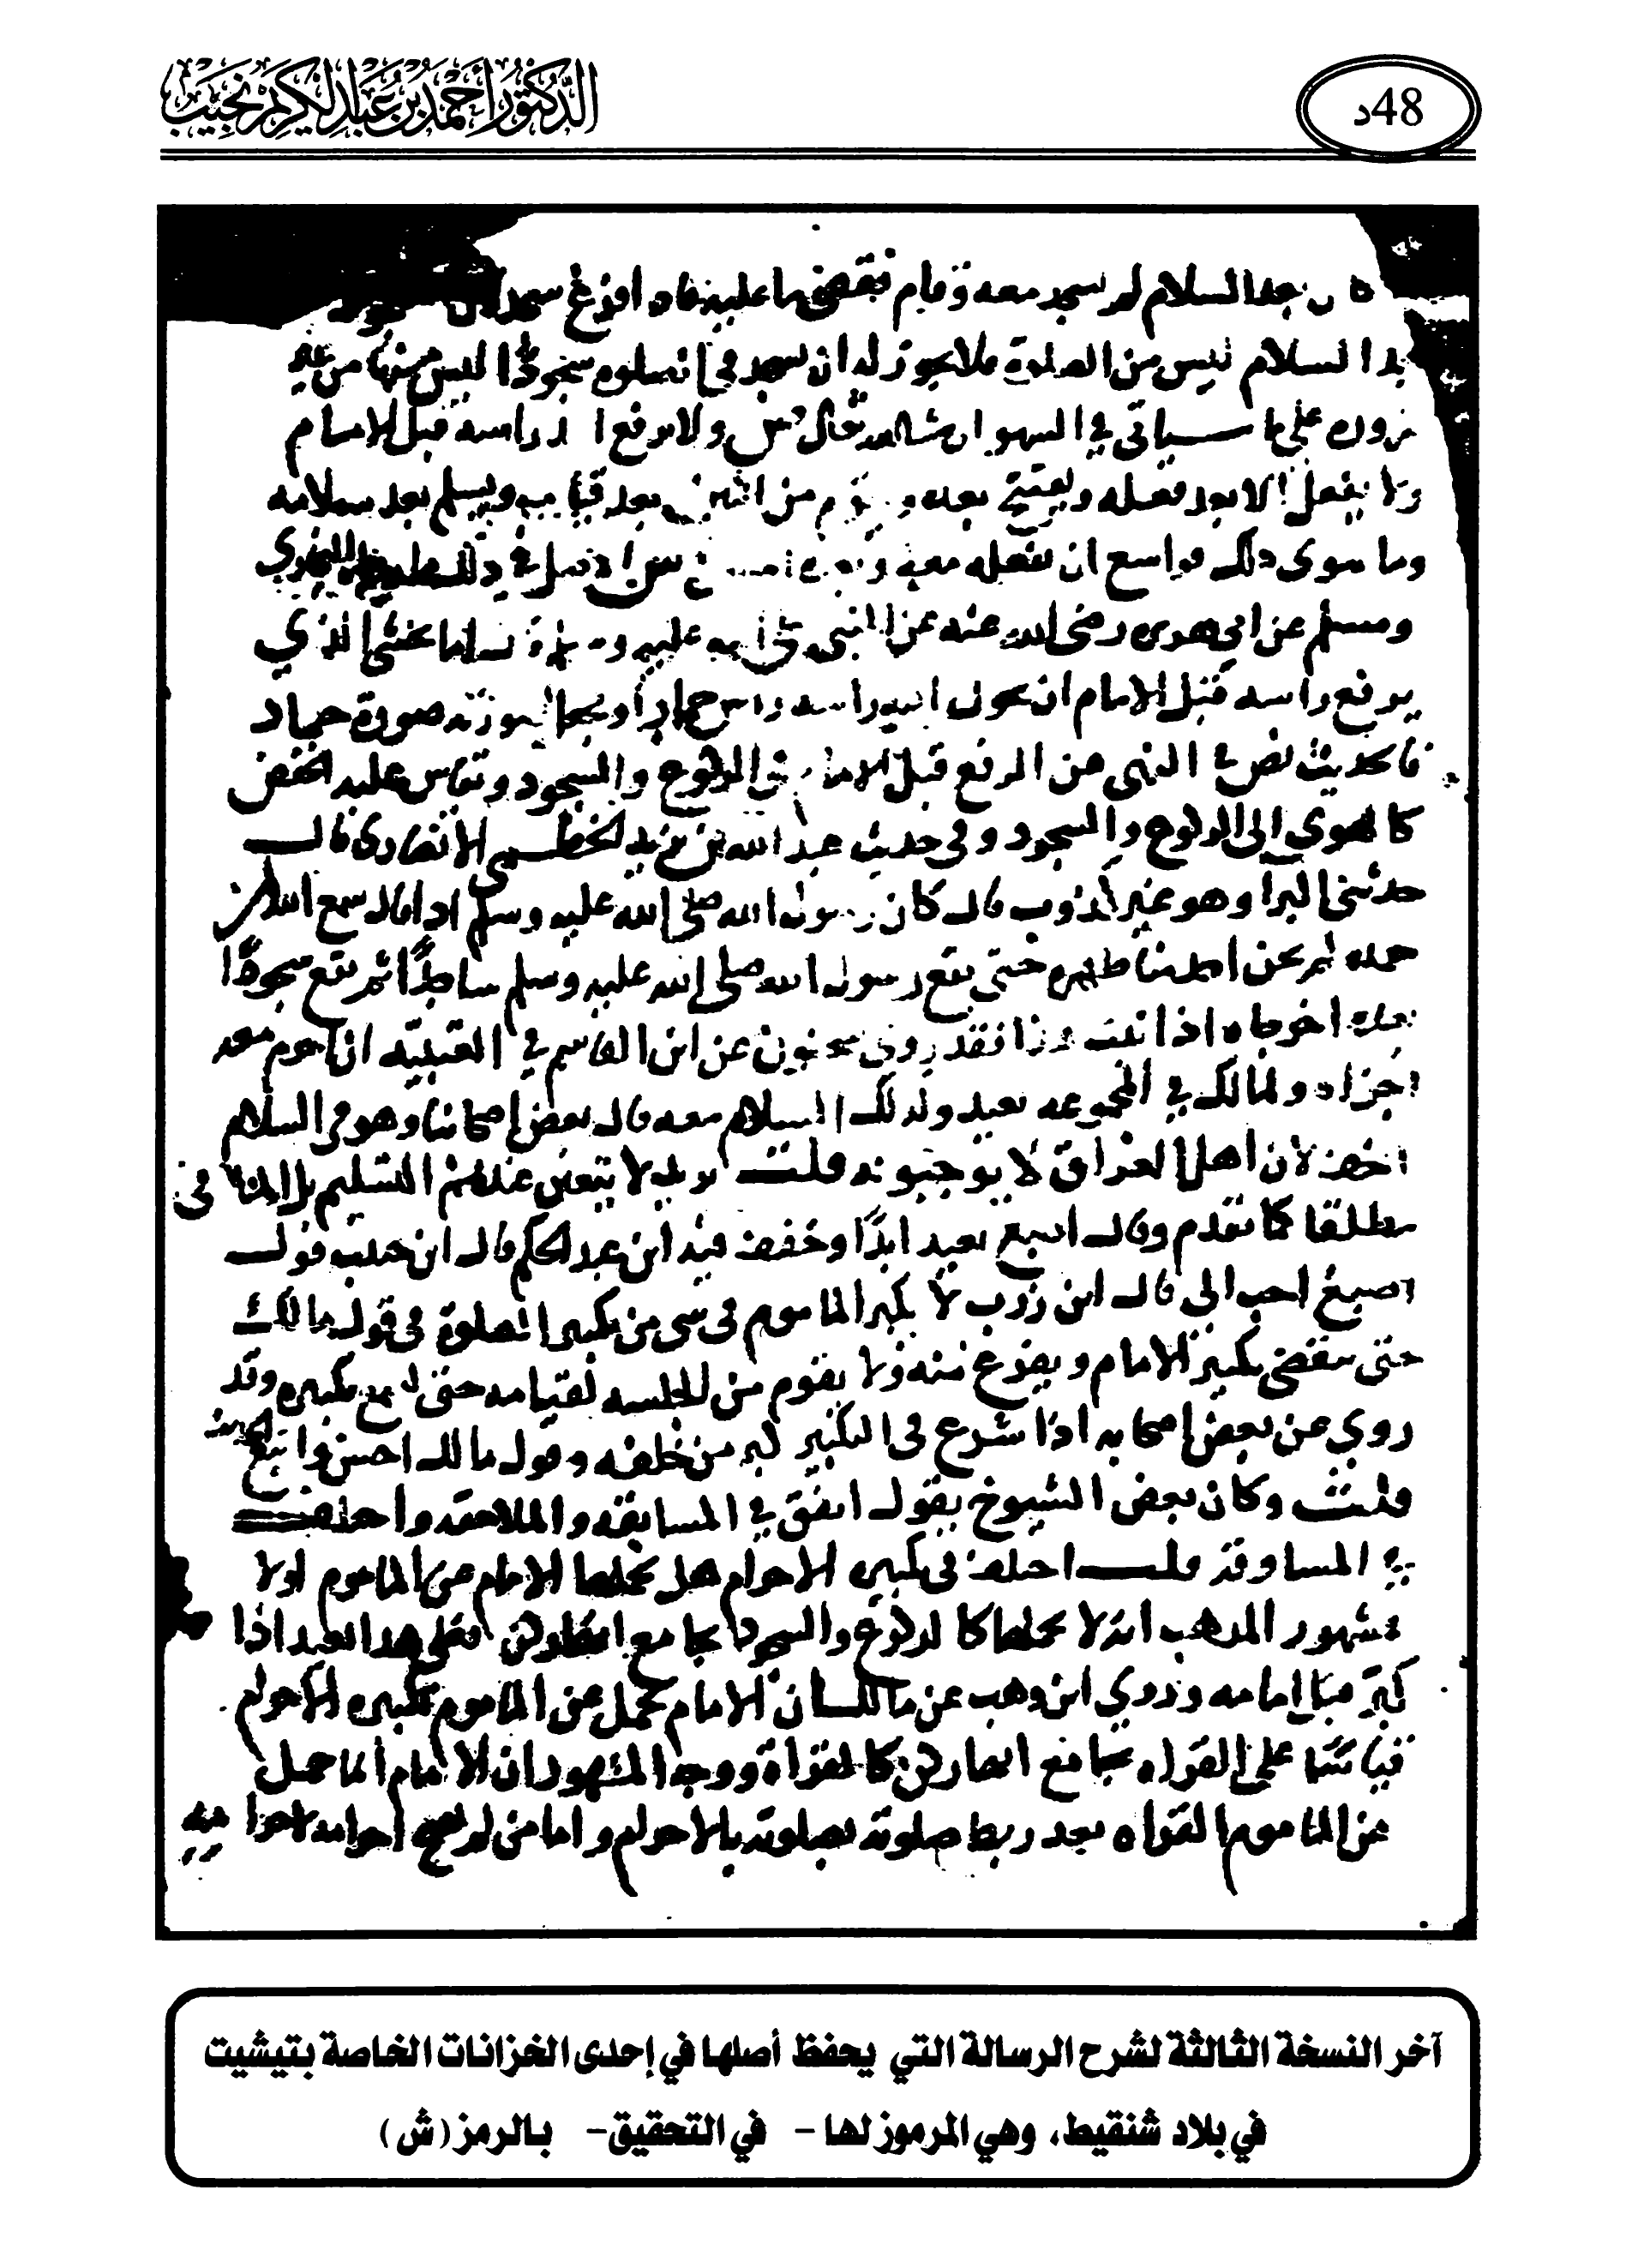 48د
الدكتور أحمد بن عبد الكريم نجيب
بعد السلام لم يسجد معه وقام فقضى ما عليه فاذا فرغ سجد
السلام ليس من الصلوة فلا يجوز له ان يسجد في
على ما سياتي في السهو ان شا الله تعالى ص ولا يرفع ا راسه قبل الامام
ولا يفعل الا بعد فعله ويفتتح بعده و من اثنتين بعد قيامه ويسلم بعد سلامه
وما سوى ذلك فواسع ان يفعله معه و
ومسلم عن ابي هريره رضي الله عنه عن النبي عليه اما يخشى الذي
يرفع راسه قبل الامام ان يحول الله راسه راس حمار او يجعل صورته صورة حمار
فالحديث نص في النهي عن الرفع قبل الامام في الركوع والسجود وتقاس عليه الخفض
كالهوي الى الركوع والسجود وفي حديث عبد الله بن يزيد الخطمي الانصاري قال
حدثني البرا وهو غير كذوب قال كان رسول الله صلى الله عليه وسلم اذا قال سمع الله لمن
حمده لم يحن احد منا ظهره حتى يقع رسول الله صلى الله عليه وسلم ساجدًا ثم نقع سجودًا
بعده اخرجاه اذا ثبت هذا فقد روى سحنون عن ابن القاسم في العتبية ان احرم معه
اجزاه ولمالك في المجموعه يعيد وكذلك السلام معه قال بعض اصحابنا وهو في السلام
اخف لان اهل العراق لا يوجبونه قلت يريد لا يتعين عندهم التسليم بل المنافي
مطلقا كما تقدم وقال اصبغ يعيد ابدًا وخفف فيه ابن عبد الحكم قال ابن حبيب قول
اصبغ احب الي قال ابن زرب لا يكبر الماموم في شي من تكبير الصلوة في قول مالك
حتى ينقضي تكبير الامام ويفرغ منه ولا يقوم من الجلسه لقيامه حتى يتم تكبيره وقد
روي عن بعض اصحابه اذا شرع في التكبير كبر من خلفه وقول مالك احسن واتبع للحديث
قلت وكان بعض الشيوخ يقول اتفق في المسابقه والملاحقه واختلف
في المساوقة قلت اختلف في تكبيره الاحرام هل يحملها الامام عن الماموم اولا
فمشهور المذهب انه لا يحملها كالركوع والسجود بجامع انها ركن فعلى هذا يعيد اذا
كبر قبل امامه وروي ابن وهب عن مالك ان الامام يحمل عن الماموم تكبيره الاحرام
قياسًا على القراه بجامع انها ركن كالقراة ووجه المشهور ان الامام انما حمل
عن الماموم القراه بعد ربط صلوته بصلوته بالاحرام واما من لم يصح احرامه
آخر النسخة الثالثة لشرح الرسالة التي يحفظ أصلها في إحدى الخزانات الخاصة بتيشيت
في بلاد شنقيط، وهي المرموز لها - في التحقيق - بالرمز (ش)